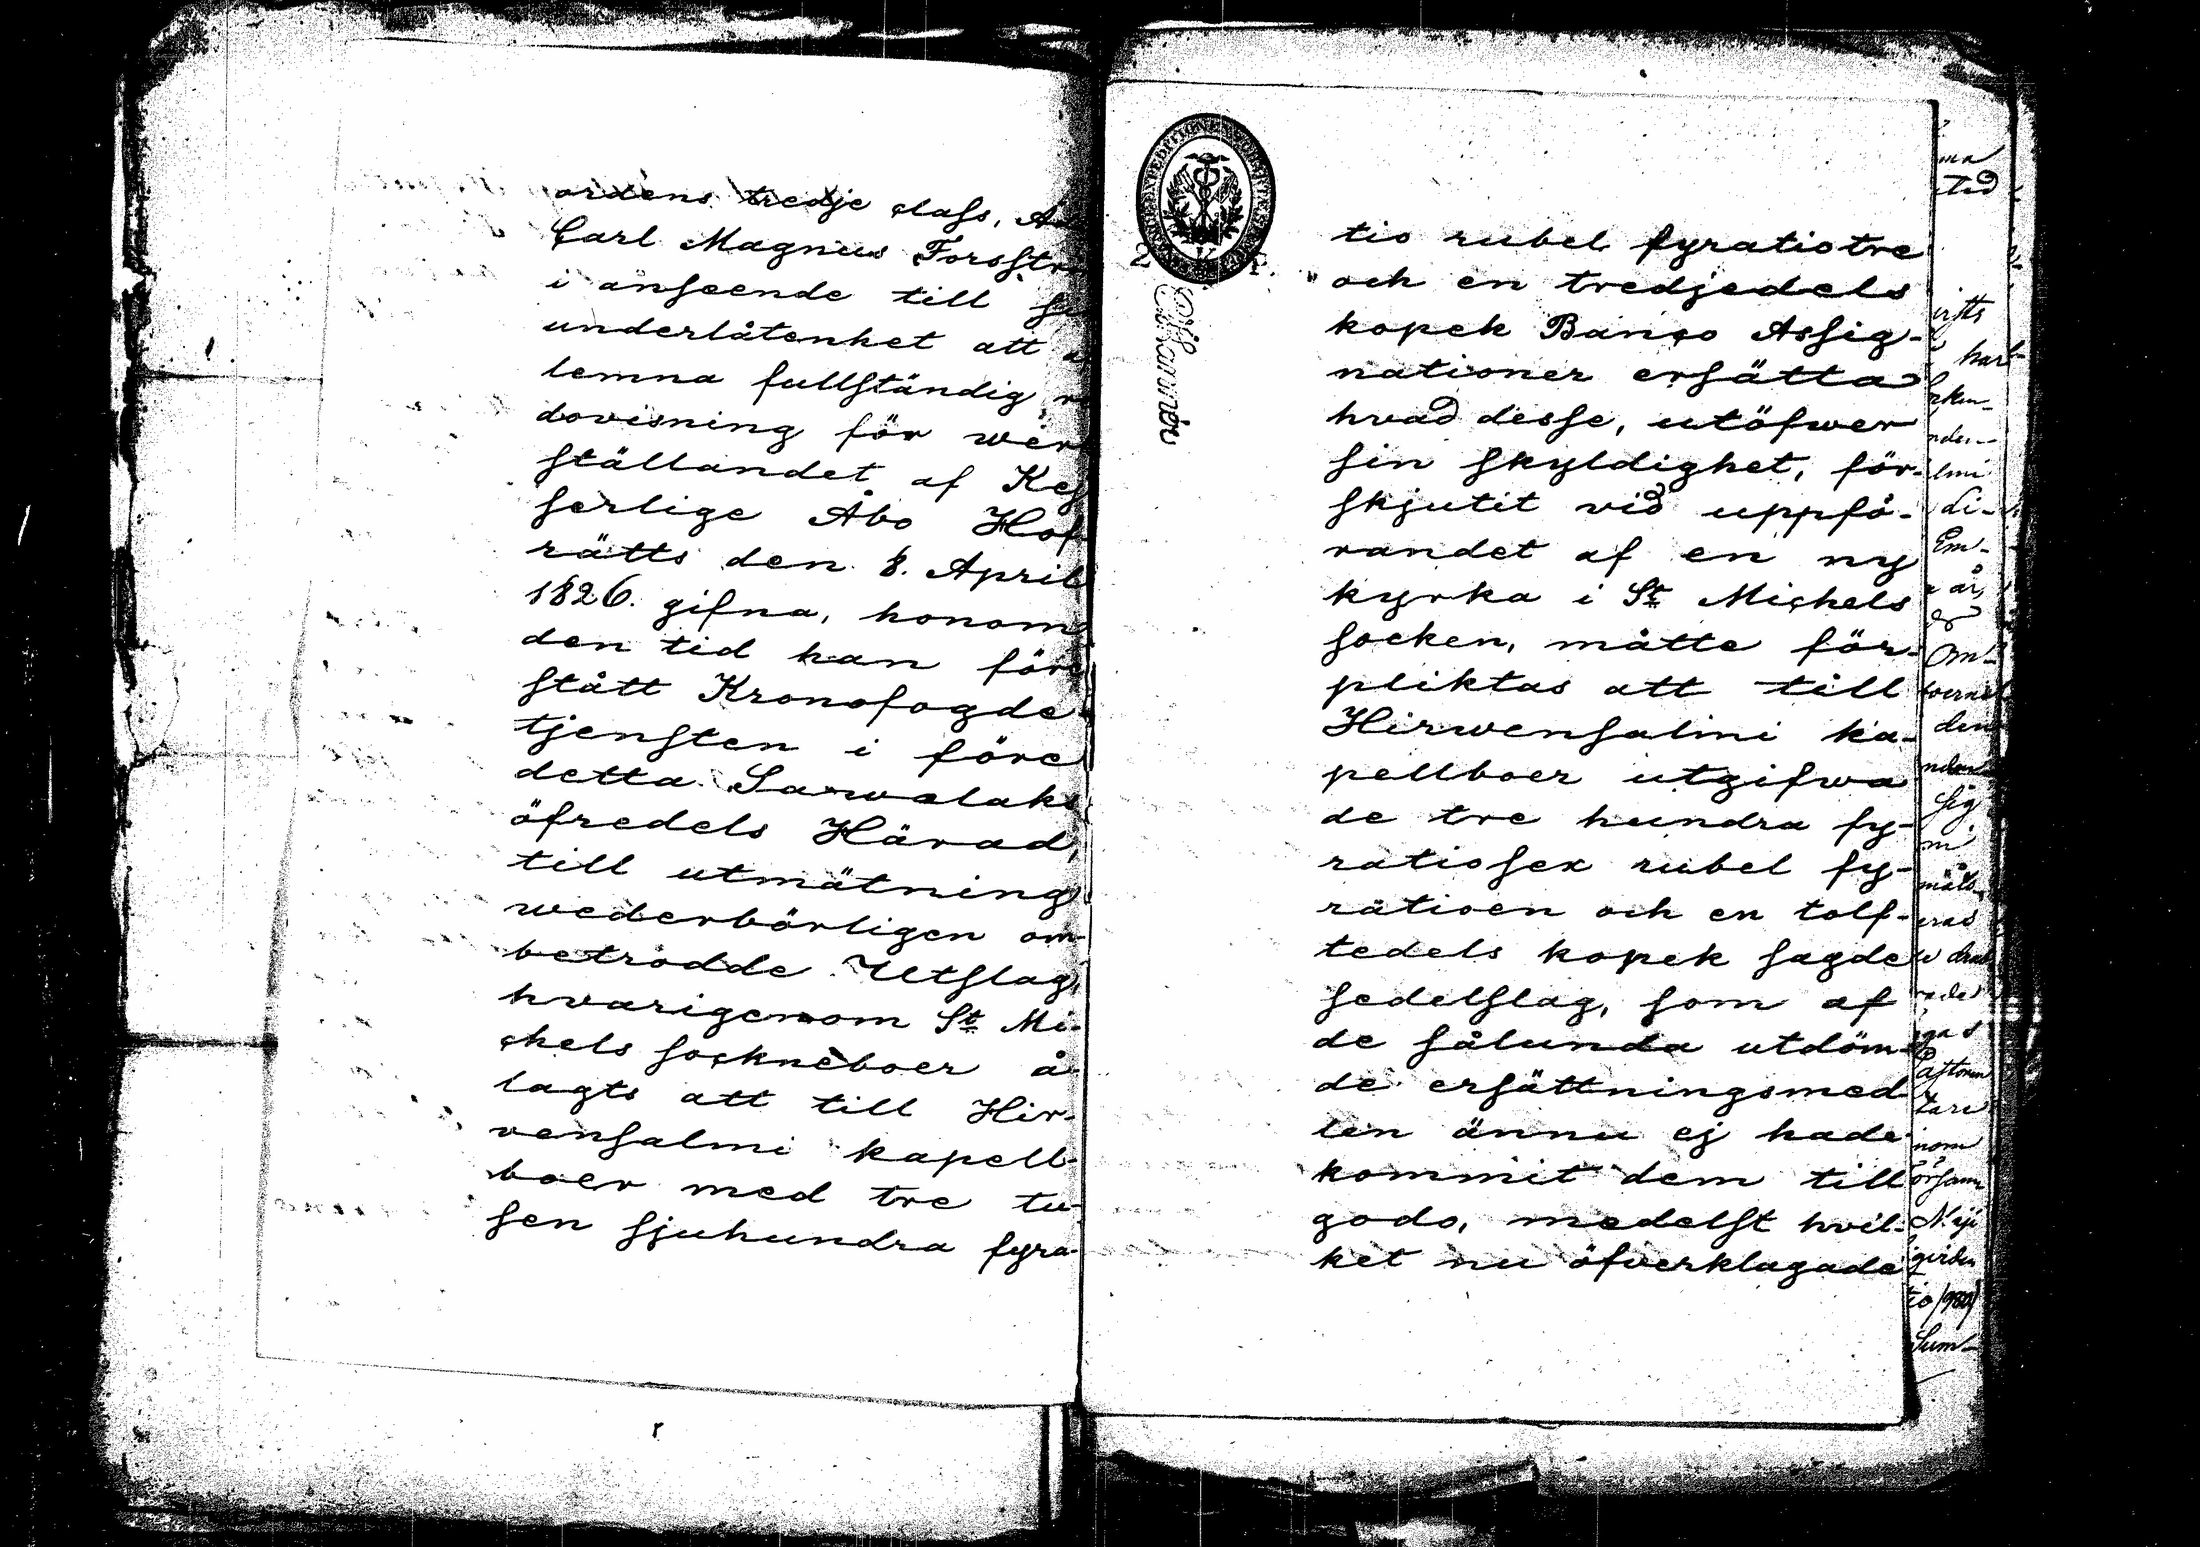 ordens tredje class, A
Carl Magnus Forsstr
i anseende till
underlåtenhet att
lemna fullständig
dovisning för
ställandet af Kej
serlige Åbo Hof
rätts den 8. April
1826. gifna, honom
den tid han före
stått Kronofogde
tjensten i före
detta Sawolaks
öfredels Härad,
till utmätning
wederbörligen om
betrodde Utslag,
hvarigenom St. Mi-
chels sockneboer å-
lagts att till Hir-
vensalmi kapell-
boer med tre tu-
sen sjuhundra fyra-
2
tio rubel fyratiotre
och en tredjedels
kopek Banco Assig-
nationer ersätta
hvad desse, utöfwer
sin skyldighet, för-
skjutit vid uppfö-
randet af en ny
kyrka i St. Michels
socken, måtte för-
pliktas att till
Hirwensalmi ka-
pellboer utgifwa
de tre hundra fy-
ratiosex rubel fy-
ratioen och en tolf-
tedels kopek sagde
sedelslag, som af
de sålunda utdöm-
de ersättningsmed-
len ännu ej hade
kommit dem till
godo, medelst hvil-
ket nu öfverklagade